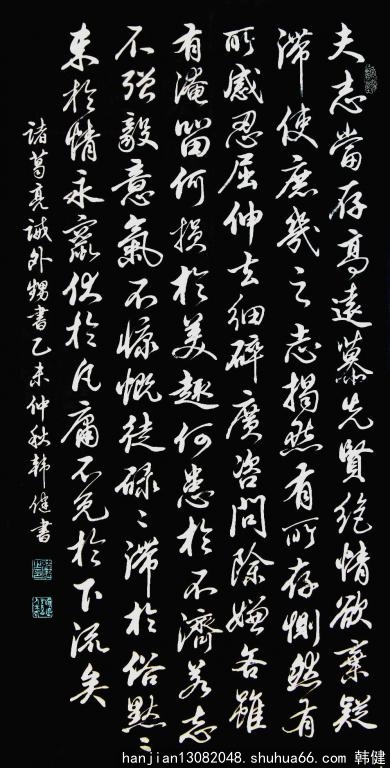 夫志當存高遠慕先賢絕情欲棄疑
滯使庶幾之志揭然有所存惻然有
所感忍屈伸去細碎廣咨問除嫌吝雖
有淹留何損於美趣何患於不濟若志
不強毅意氣不慷慨徒碌〻滯於俗默〻
束於情永竄伏於凡庸不免於下流矣
諸葛亮誡外甥書乙未仲秋韓健書
hanjian13082048.shuhua66.com 韩健